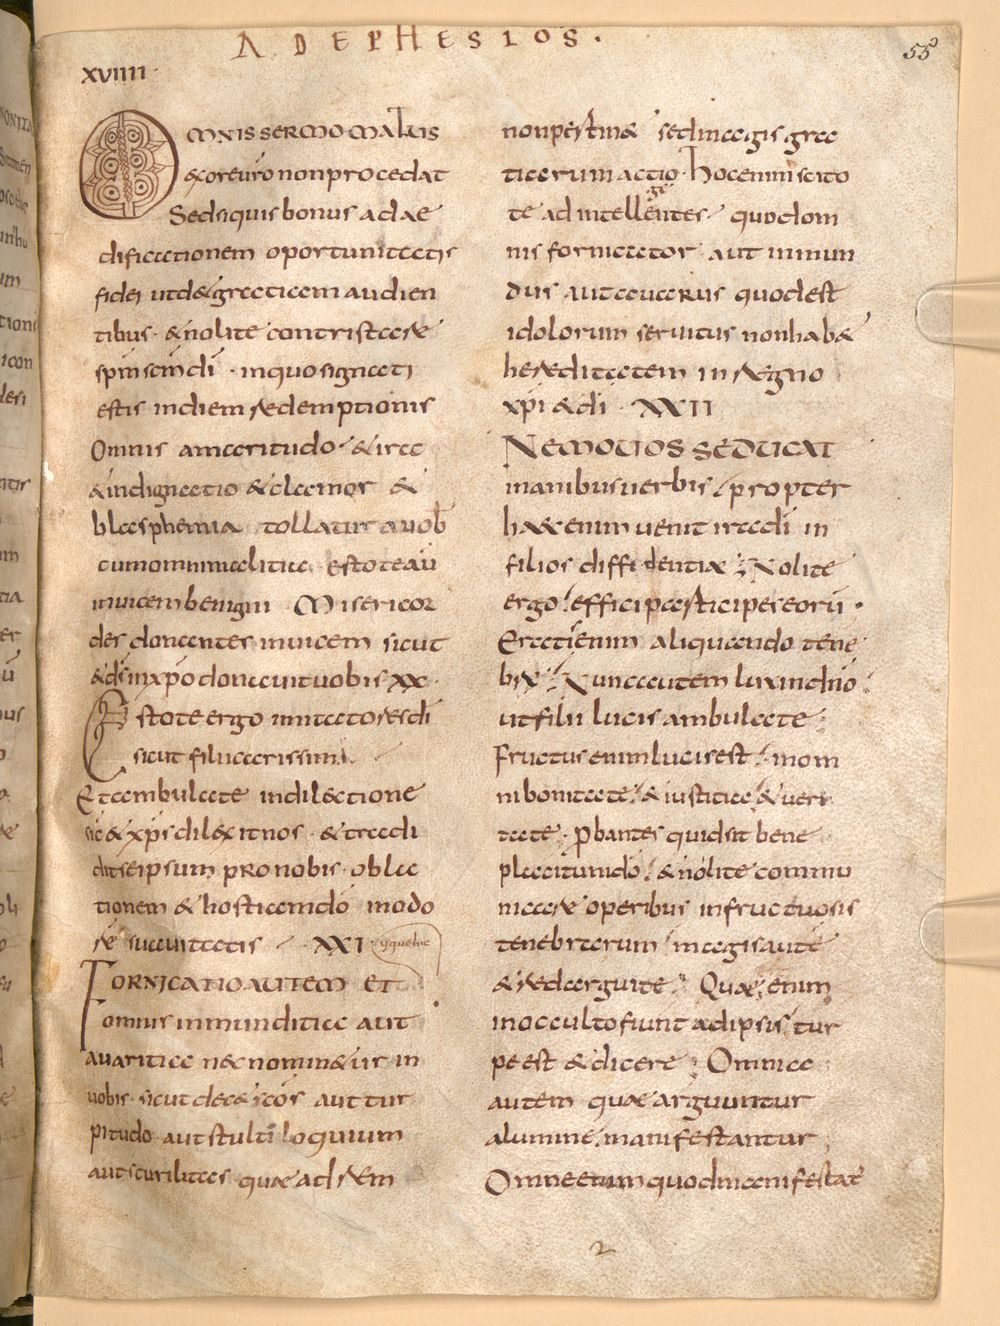 AD EPHESIOS.
55
XVIIII.
OMNIS SERMO MALUS
& ore uro non procedat
Sed si quis bonus ad ae
dificationem oportunitatis
fidei ut d& gratiam audien
tibus. & nolite contristare
spm scm di. in quo signati
estis in diem redemptionis
Omnis amaritudo & ira
& indignatio & clamor &
blasphemia tollatur a uob
cum omni malitia Estote au
inuicem benigni Misericor
des donantes inuicem sicut
& ds in xpo donauit uobis XX.
Estote ergo imitatores di
sicut filii carissimi
Et ambulate in dilectione
sic & xps dilexit nos & tradi
dit seipsum pro nobis obla
tionem & hostiam do in odo
re suauitatis XXI
FORNICATIO AUTEM ET
omnis inmunditia aut
auaritia nec nomin&ur in
uobis. sicut dec& scos aut tur
pitudo aut stulti loquium
aut scurilitas quae ad rem
non pertin& sed magis gra
tiarum actio. hoc enim scito
ge
te ad intellentes quod om
nis fornicator aut inmun
dus aut auarus quod est
idolorum seruitus non hab&
hereditatem in regno
xpi & di. XXII
NEMO UOS SEDUCAT
inanibus uerbis. propter
haec enim uenit ira di in
filios diffidentiae Nolite
ergo effici participes eorū.
Eratis enim aliquando tene
brae Nunc autem lux in dno
ut filii lucis ambulate
Fructus enim lucis est in om
ni bonitate & iustitia & ueri
tate. pbantes quid sit bene
placitum do & nolite commu
nicare operibus infructuosis
tenebrarum magis aute
& redarguite Quae enim
in occulto fiunt ab ipsis tur
pe est & dicere Omnia
autem quae arguuntur
a lumine manifestantur
Omne enim quod manifestat
2